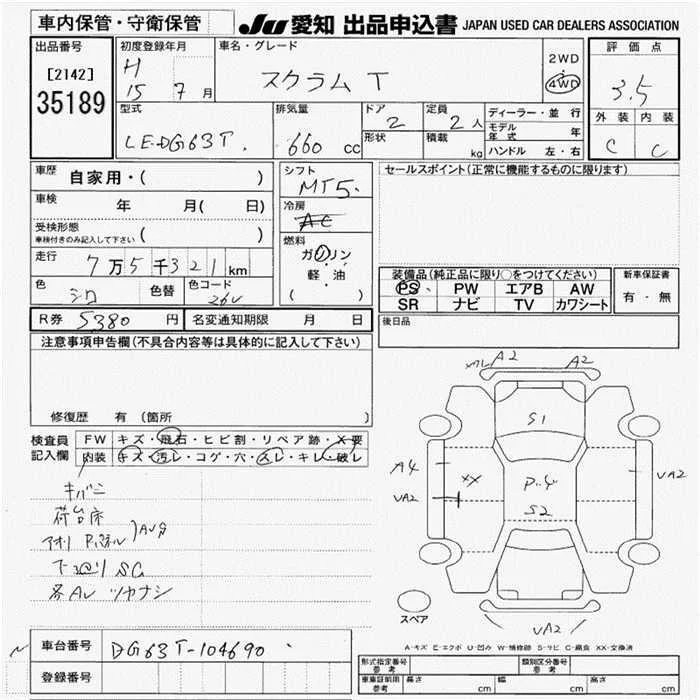 車内保管・守衛保管
JU 愛知 出品申込書 JAPAN USED CAR DEALERS ASSOCIATION
出品番号
[2142]
35189
初度登録年月
H
15 7 月
車名・グレード
スクラム T
2WD
4WD
評価点
3.5
外装 内装
C C
型式
LE-DG63T.
排気量
660 cc
ドア
2
形状
定員
2 人
積載
kg
ディーラー・並行
モデル年式 年
ハンドル 左・右
車歴
自家用・( )
車検
年 月( 日)
受検形態
車検付きのみ記入して下さい ( )
走行
7万5千321 km
色
シロ
色替
色コード
26U
シフト
MT5.
冷房
AC
燃料
ガソリン
軽・油
( )
セールスポイント(正常に機能するものに限ります)
装備品(純正品に限り○をつけてください)
PS PW エアB AW
SR ナビ TV カワシート
新車保証書
有・無
後日品
R券 5380 円
名変通知期限 月 日
注意事項申告欄(不具合内容等は具体的に記入して下さい)
修復歴 有 (箇所 )
検査員記入欄
FW キズ・飛石・ヒビ割・リペア跡・X要
内装 キズ・汚レ・コゲ・穴・スレ・キレ・破レ
キバミ
荷台床
アオリ Rパネル AU多
下回り SC
各AL ツヤナシ
A2
A2
S1
A4
XX
UA2
P.4
S2
UA2
UA2
スペア
A-キズ E-エクボ U-凹み W-補修跡 S-サビ C-腐食 XX-交換済
車台番号
DG63T-104690
登録番号
形式指定番号
参考
類別区分番号
参考
車庫証明用
参考
長さ cm 幅 cm 高さ cm